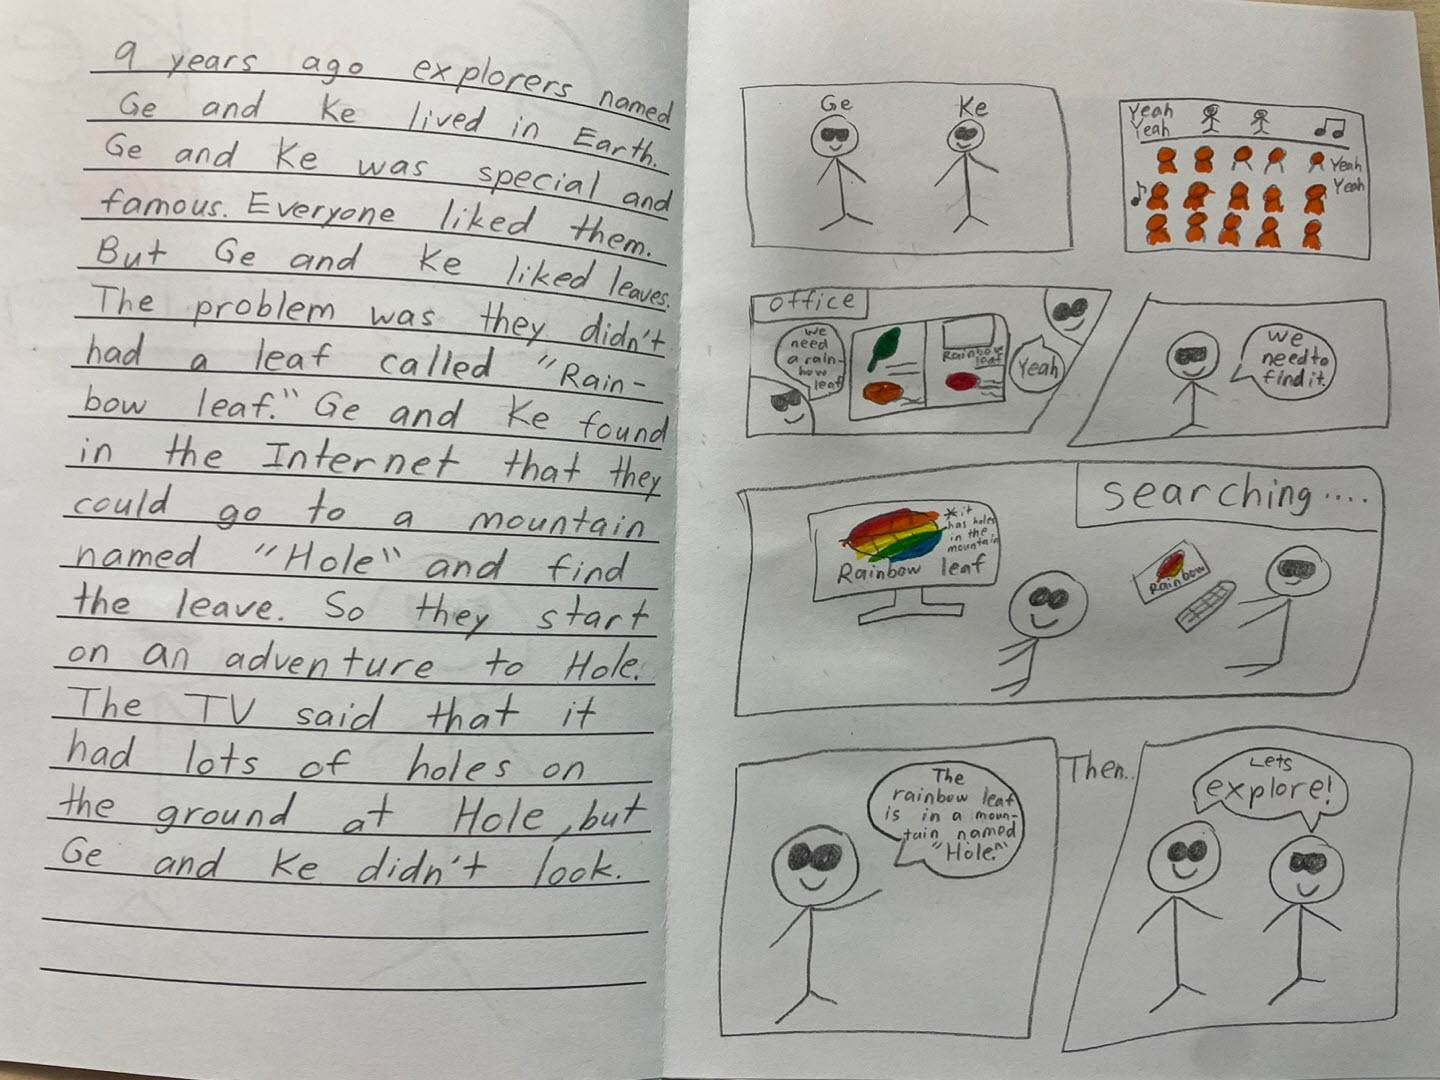 9 years ago explorers named
Ge and Ke lived in Earth.
Ge and Ke was special and
famous. Everyone liked them.
But Ge and Ke liked leaves.
The problem was they didn't
had a leaf called "Rain-
bow leaf." Ge and Ke found
in the Internet that they
could go to a mountain
named "Hole" and find
the leave. So they start
on an adventure to Hole.
The TV said that it
had lots of holes on
the ground at Hole, but
Ge and Ke didn't look.
Ge
Ke
Yeah
Yeah
Yeah
Yeah
office
We
need
a rain-
bow
leaf
Rainbow
leaf
Yeah
We
need to
find it.
searching....
*it
has holes
in the
mountain
Rainbow leaf
Rainbow
The
rainbow leaf
is in a moun-
tain named
"Hole."
Then..
Lets
explore!